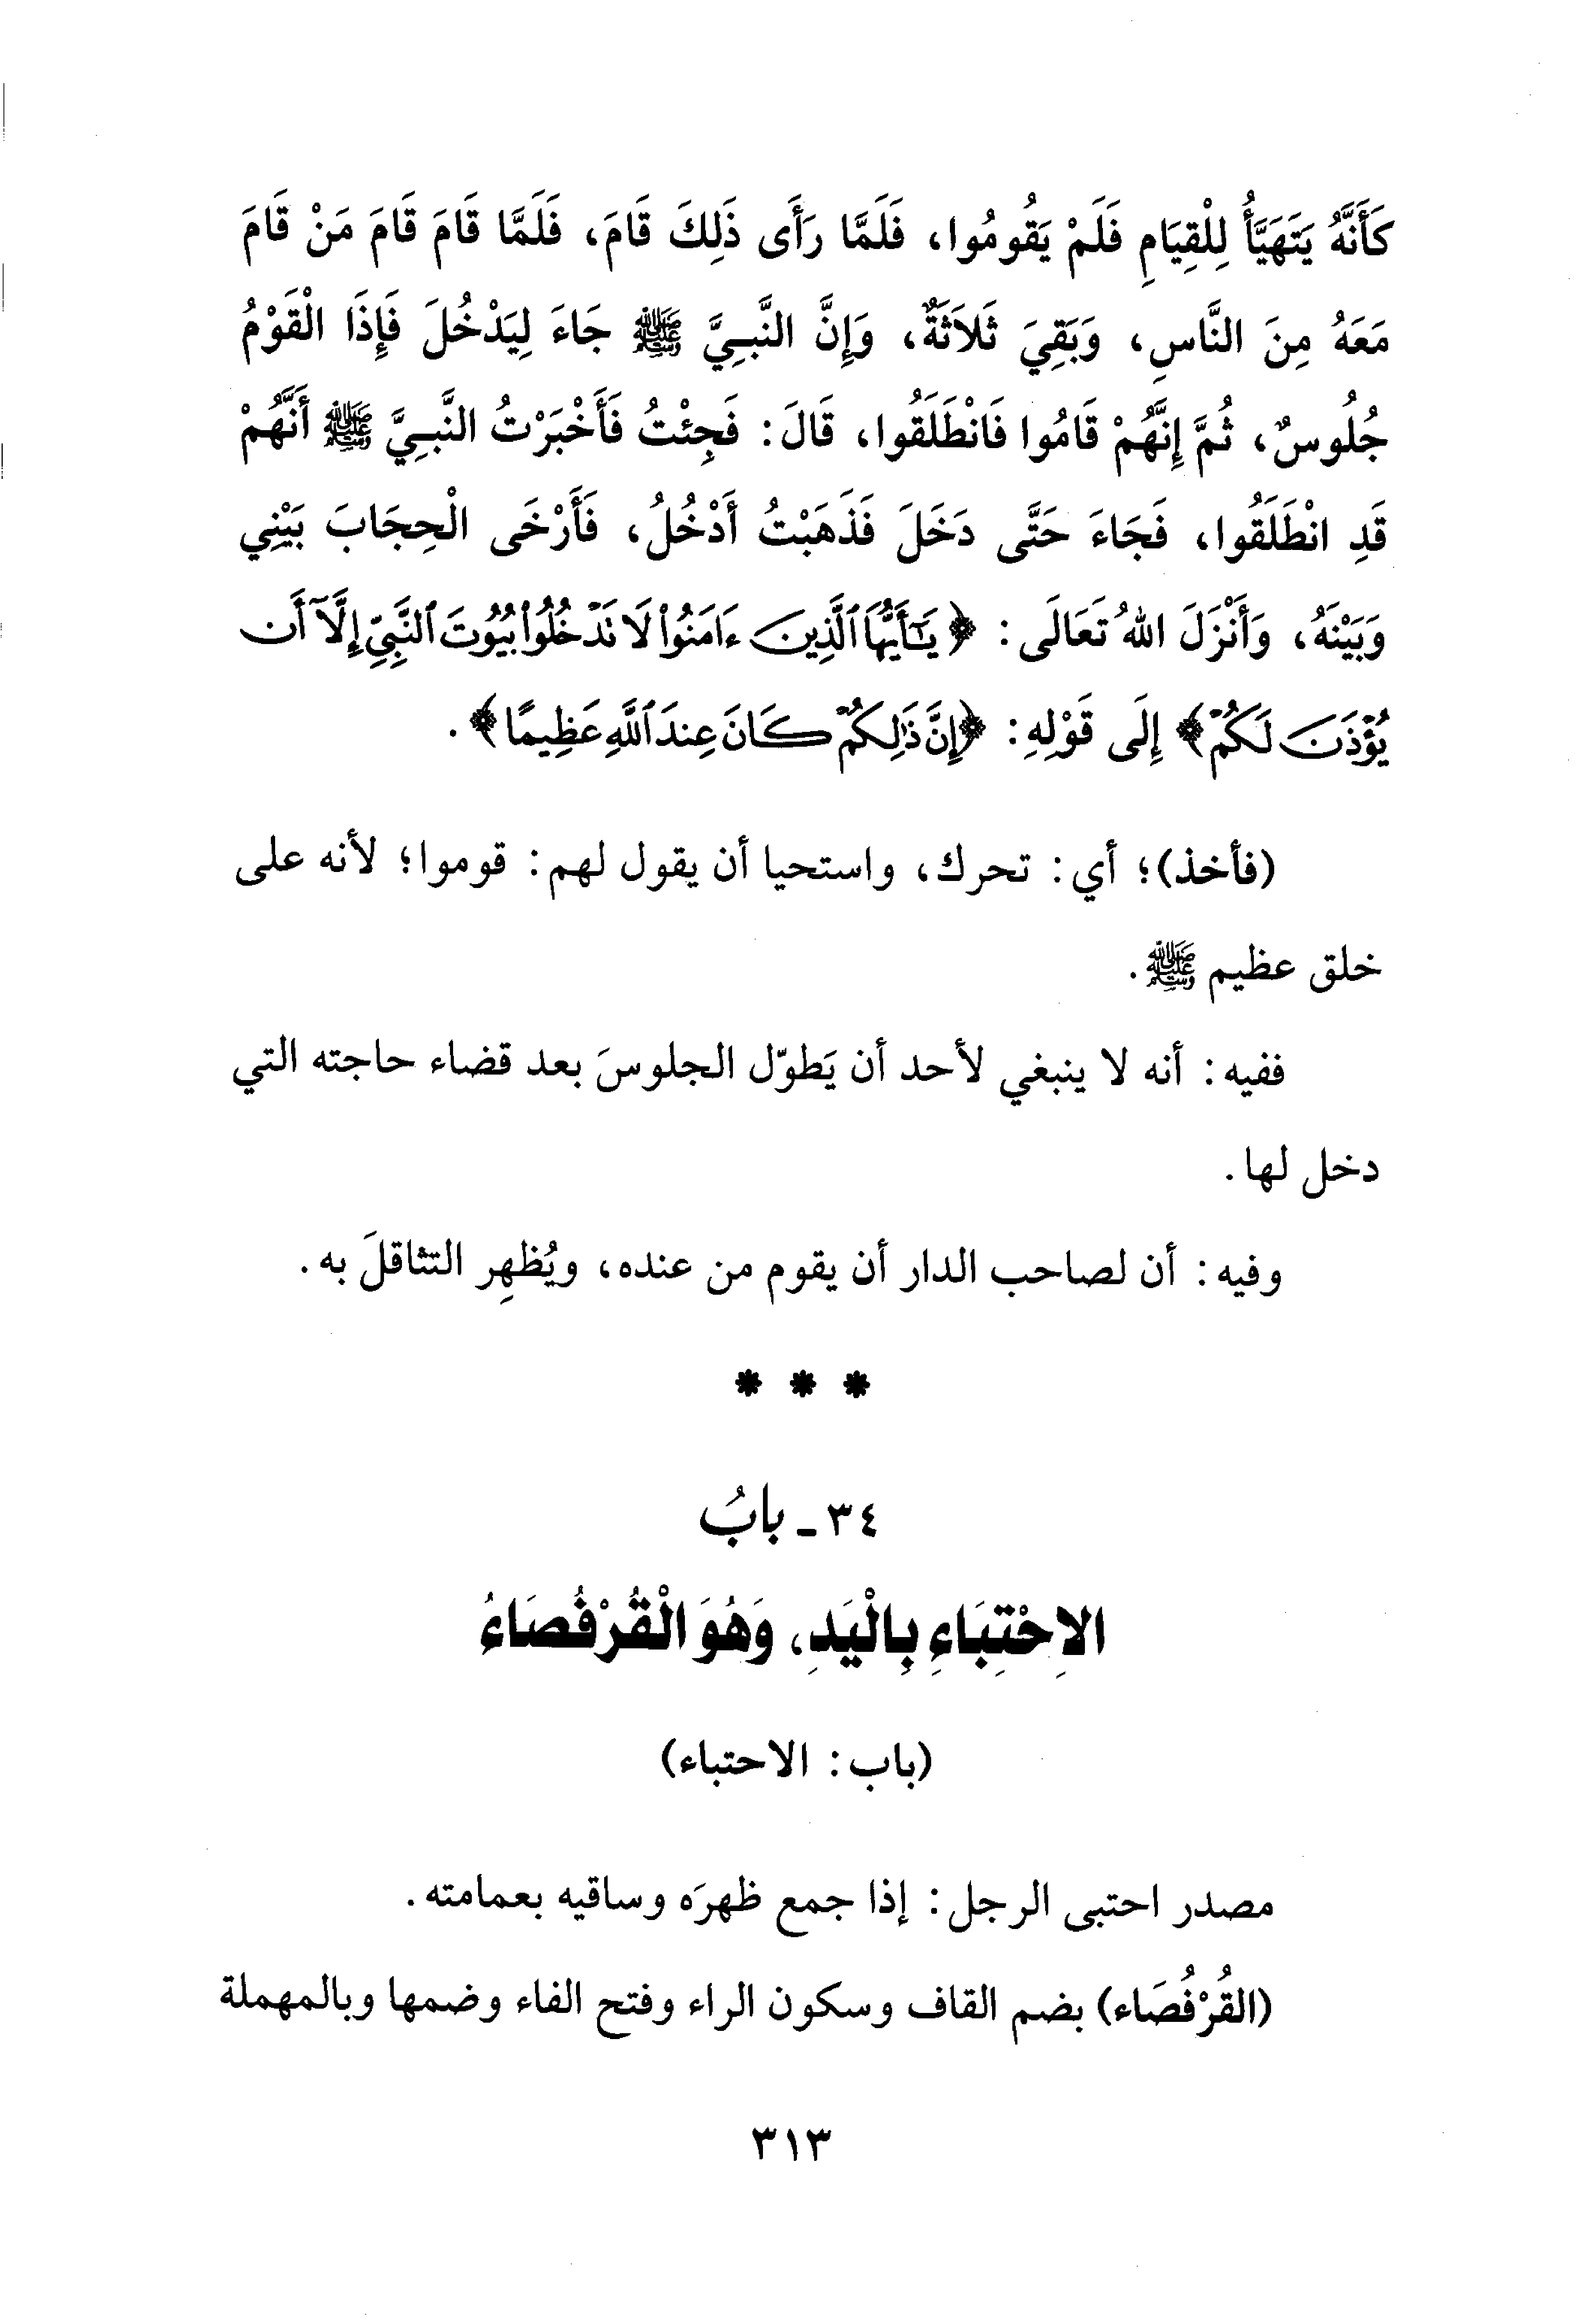 كَأَنَّهُ يَتَهَيَّأُ لِلْقِيَامِ فَلَمْ يَقُومُوا، فَلَمَّا رَأَى ذَلِكَ قَامَ، فَلَمَّا قَامَ قَامَ مَنْ قَامَ
مَعَهُ مِنَ النَّاسِ، وَبَقِيَ ثَلاَثَةٌ، وَإِنَّ النَّبِيَّ ﷺ جَاءَ لِيَدْخُلَ فَإِذَا الْقَوْمُ
جُلُوسٌ، ثُمَّ إِنَّهُمْ قَامُوا فَانْطَلَقُوا، قَالَ: فَجِئْتُ فَأَخْبَرْتُ النَّبِيَّ ﷺ أَنَّهُمْ
قَدِ انْطَلَقُوا، فَجَاءَ حَتَّى دَخَلَ فَذَهَبْتُ أَدْخُلُ، فَأَرْخَى الْحِجَابَ بَيْنِي
وَبَيْنَهُ، وَأَنْزَلَ اللهُ تَعَالَى: ﴿يَٰٓأَيُّهَا ٱلَّذِينَ ءَامَنُوا۟ لَا تَدْخُلُوا۟ بُيُوتَ ٱلنَّبِيِّ إِلَّآ أَن
يُؤْذَنَ لَكُمْ﴾ إِلَى قَوْلِهِ: ﴿إِنَّ ذَٰلِكُمْ كَانَ عِندَ ٱللَّهِ عَظِيمًا﴾.
(فأخذ)؛ أي: تحرك، واستحيا أن يقول لهم: قوموا؛ لأنه على
خلق عظيم ﷺ.
ففيه: أنه لا ينبغي لأحد أن يَطوّل الجلوسَ بعد قضاء حاجته التي
دخل لها.
وفيه: أن لصاحب الدار أن يقوم من عنده، ويُظهِر التثاقلَ به.
* * *
٣٤ - بابُ
الاِحْتِبَاءِ بِالْيَدِ، وَهُوَ الْقُرْفُصَاءُ
(باب: الاحتباء)
مصدر احتبى الرجل: إذا جمع ظهرَه وساقيه بعمامته.
(القُرْفُصَاء) بضم القاف وسكون الراء وفتح الفاء وضمها وبالمهملة
٣١٣